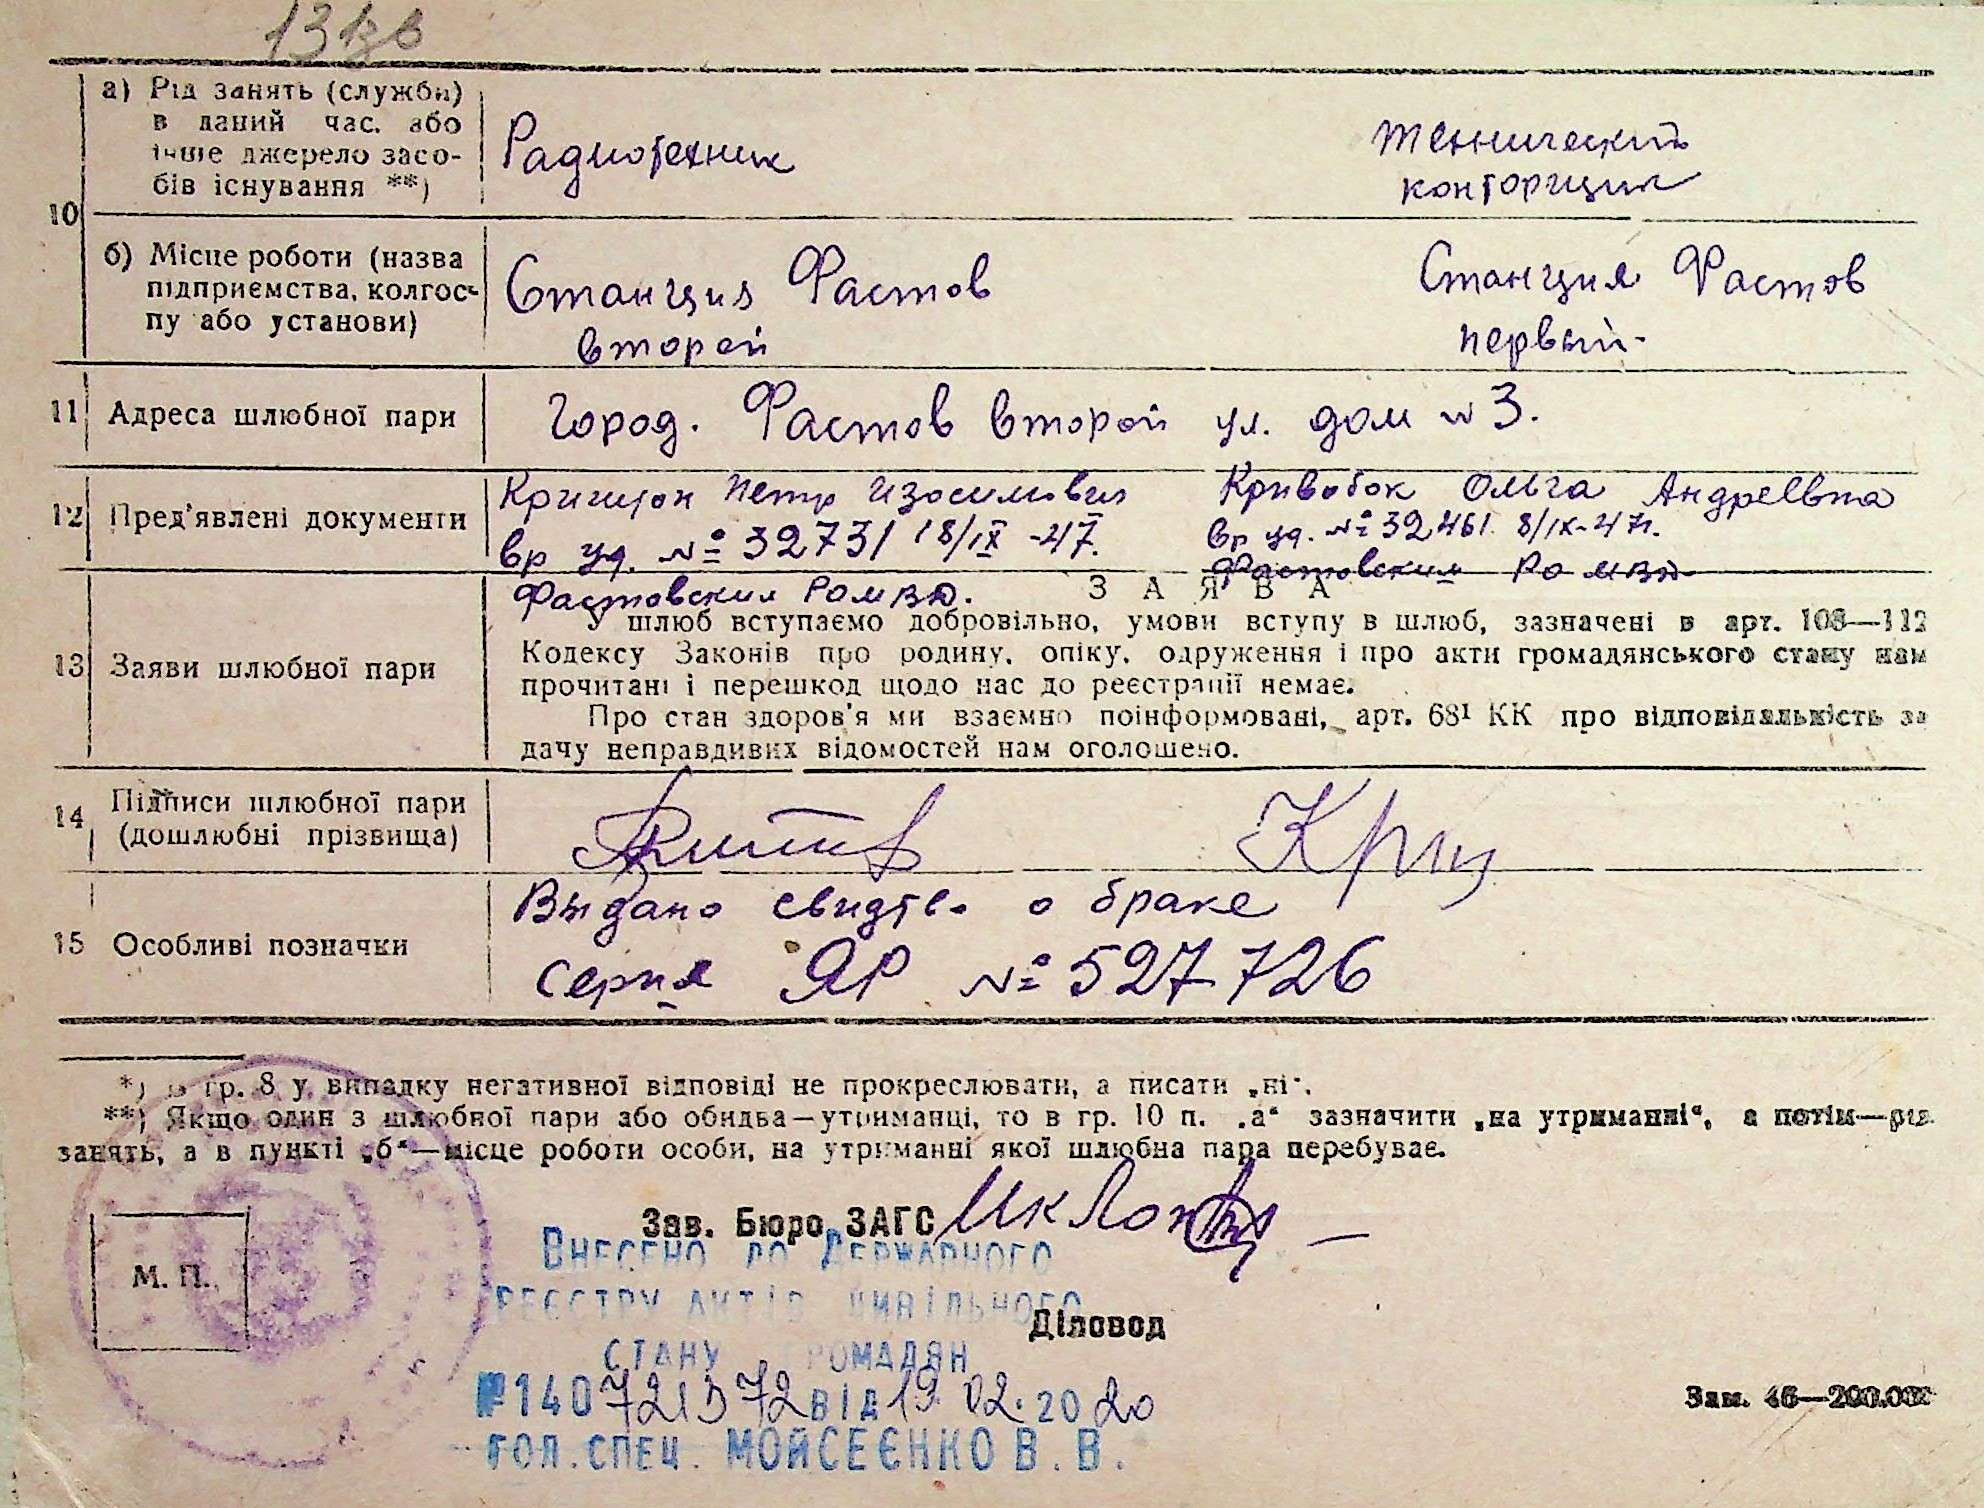 а) Рід занять (служби)
в даний час, або
інше джерело засо-
бів існування **)
Радиотехник
технический
конторщик
10
б) Місце роботи (назва
підприємства, колгос-
пу або установи)
Станция Фастов
второй
Станция Фастов
первый
11 Адреса шлюбної пари
Город. Фастов второй ул. дом № 3.
12 Пред'явлені документи
Петр Изосимович
вр уд. № 32731 18/IX -47.
Фастовским РОМВД.
Кривобок Ольга Андреевна
вр уд. № 32461 8/IX-47г.
Фастовским РОМВД
ЗАЯВА
13 Заяви шлюбної пари
У шлюб вступаємо добровільно, умови вступу в шлюб, зазначені в арт. 108—112
Кодексу Законів про родину, опіку, одруження і про акти громадянського стану нам
прочитані і перешкод щодо нас до реєстрації немає.
Про стан здоров'я ми взаємно поінформовані, арт. 68¹ КК про відповідальність за
дачу неправдивих відомостей нам оголошено.
14 Підписи шлюбної пари
(дошлюбні прізвища)
15 Особливі позначки
Выдано свидтво о браке
серия ЯР № 527726
*) В гр. 8 у випадку негативної відповіді не прокреслювати, а писати „ні“.
**) Якщо один з шлюбної пари або обидва—утриманці, то в гр. 10 п. „а“ зазначити „на утриманні“, а потім—рід
занять, а в пункті „б“—місце роботи особи, на утриманні якої шлюбна пара перебуває.
Зав. Бюро ЗАГС
М. П.
Внесено до Державного
реєстру актів цивільного
стану громадян
Діловод
№140721372 від 19.02.2020
Гол.спец. Мойсеєнко В.В.
Зам. 46—200.000